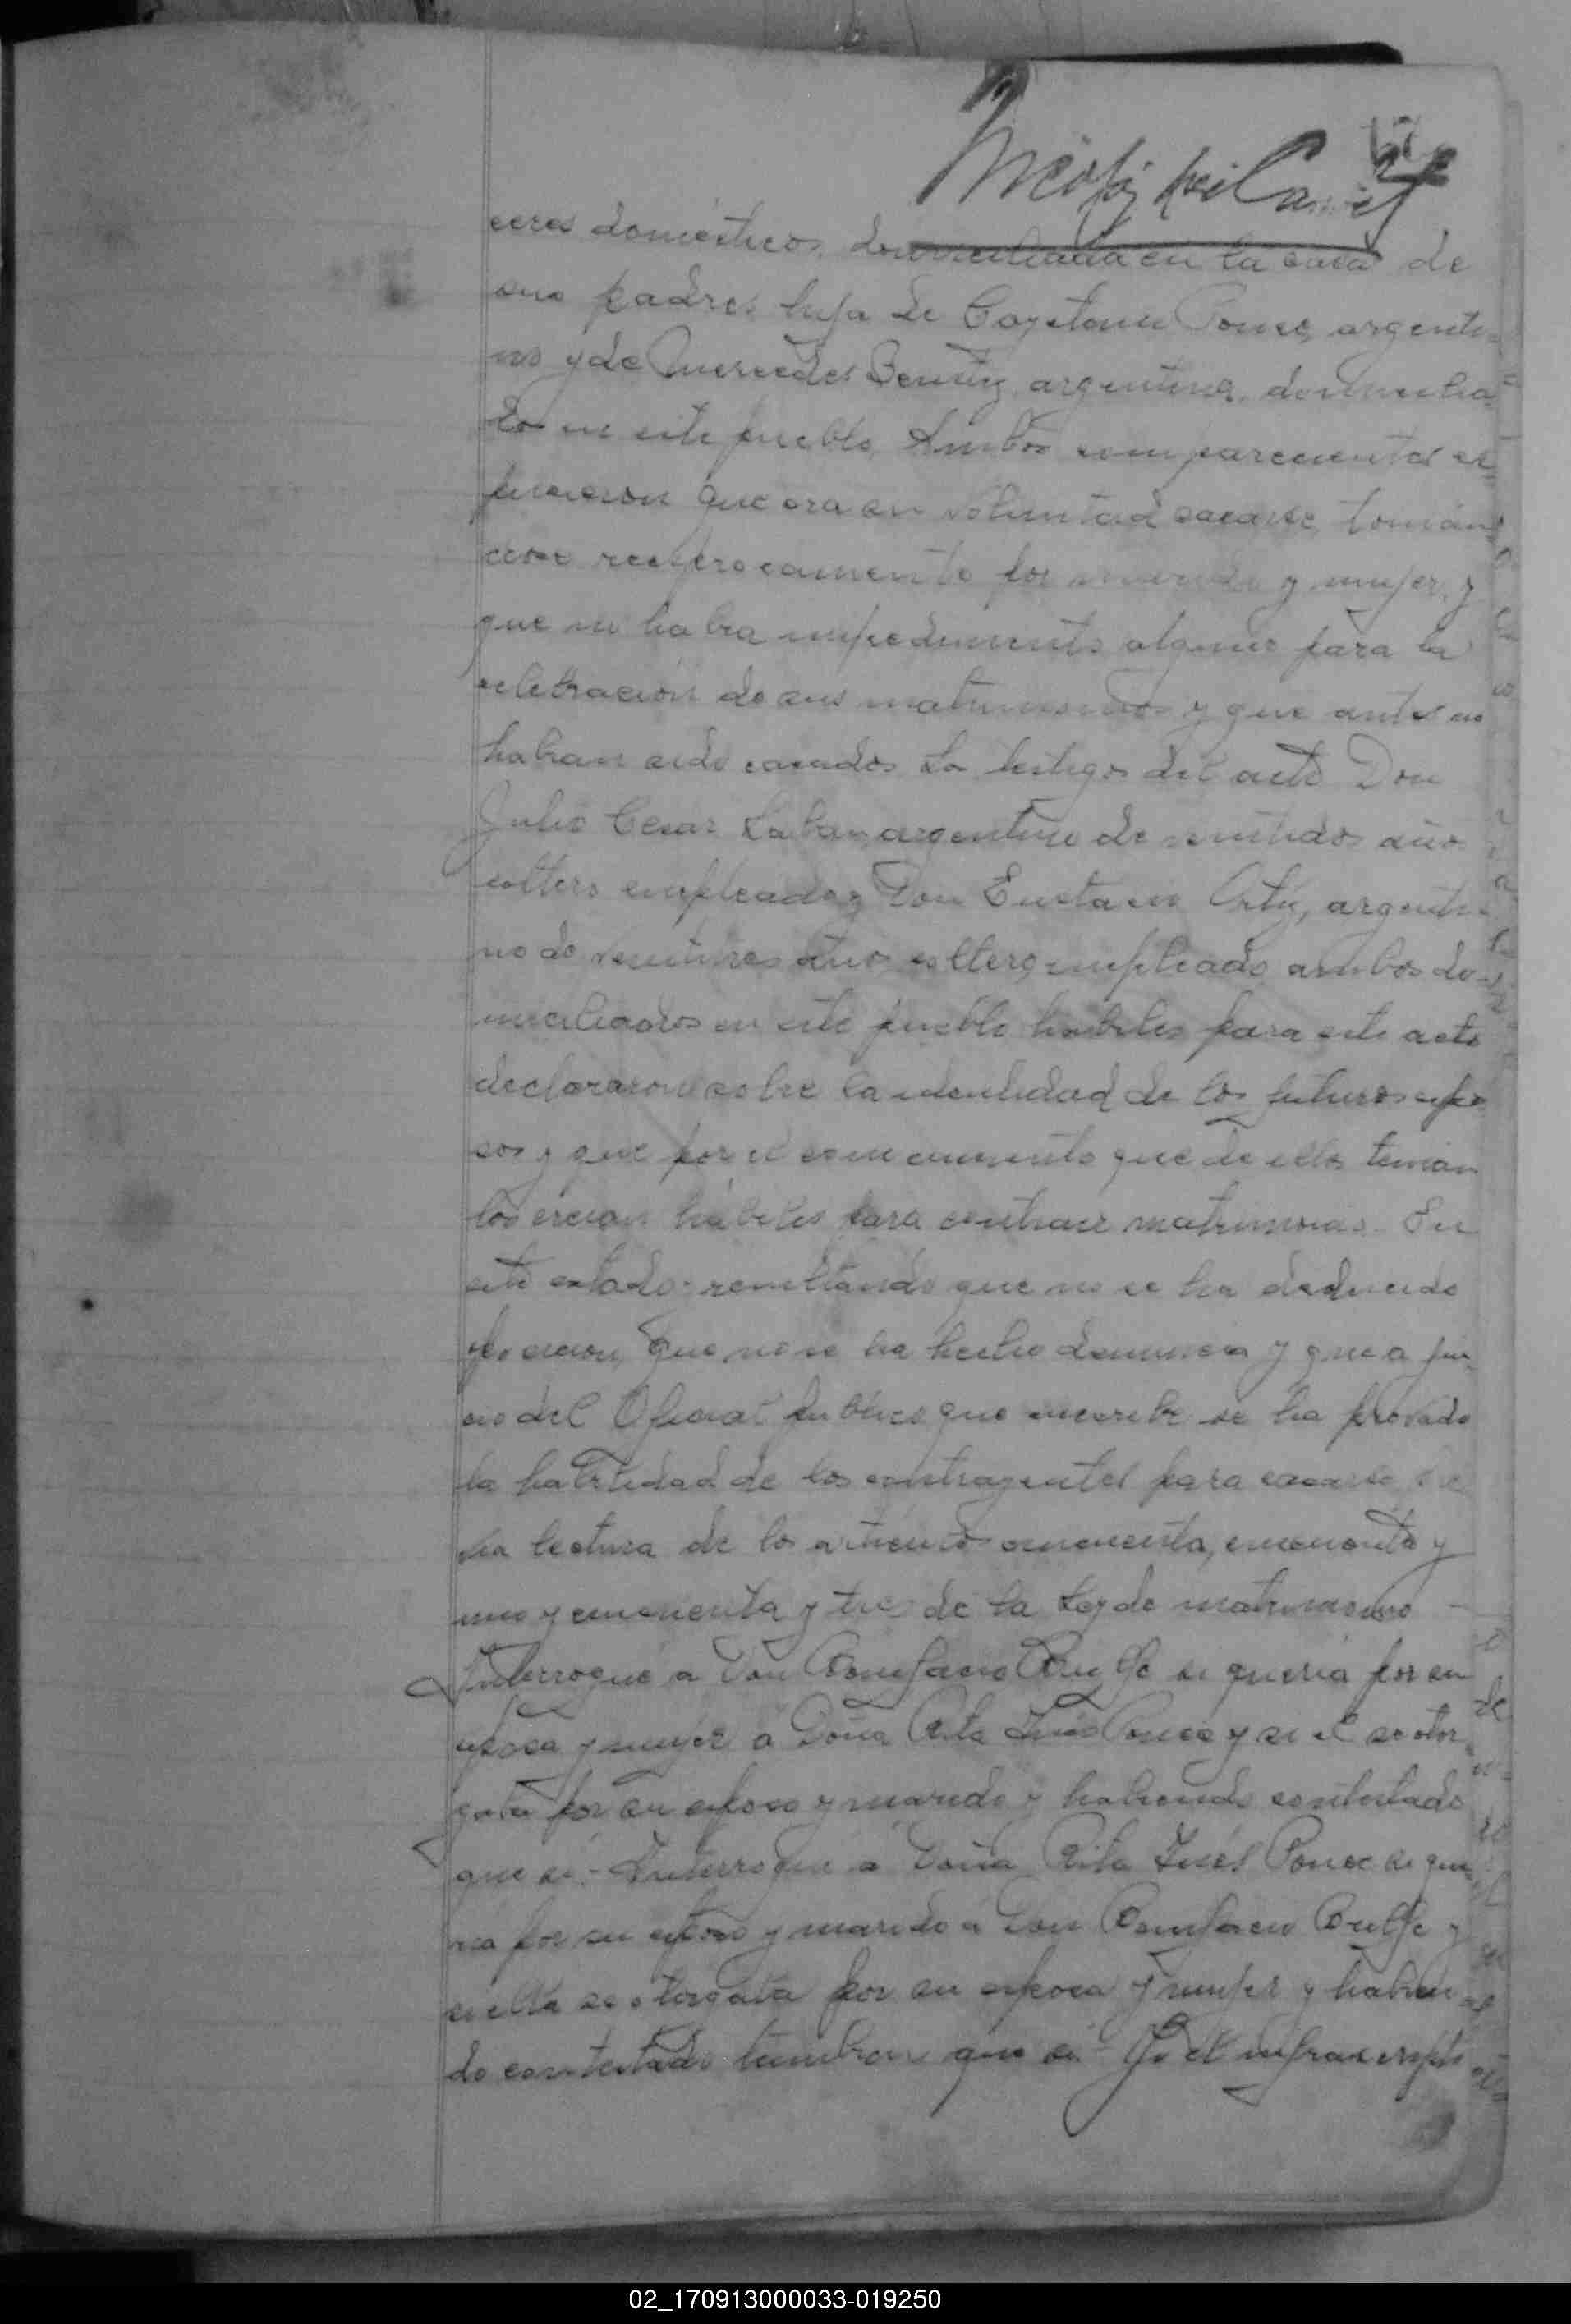 ceres domésticos, domiciliada en la casa de
sus padres, hija de Cayetano Ponce, argenti-
no y de Mercedes Benitez, argentina, domicilia-
dos en este pueblo. Ambos comparecientes ex-
pusieron que era su voluntad casarse, tomán-
dose reciprocamente por marido y mujer, y
que no habia impedimento alguno para la
celebración de sus matrimonio y que antes no
habian sido casados. Los testigos del acto Don
Julio Cesar argentino de veintidos años
soltero empleado y Don argenti-
no de veintitres años, soltero, empleado, ambos do-
miciliados en este pueblo habiles para este acto
declararon sobre la identidad de los futuros espo
sos y que por el conocimiento que de ellos tenian
los creian hábiles para contraer matrimonio. En
este estado: resultando que no se ha deducido
oposicion, que no se ha hecho denuncia y que a jui-
cio del Oficial público que suscribe se ha probado
la habilidad de los contrayentes para casarse,
la lectura de los articulos cincuenta, cincuenta y
uno y cincuenta y tres de la Ley de matrimonio
Interrogué a Don Bonifacio si queria por su
esposa y mujer a Doña Rita Inés Ponce y si el se otor
gaba por su esposo y marido y habiendo contestado
que si.- Interrogué a Doña Rita Inés Ponce si que-
ria por su esposo y marido a Don Bonifacio y
si ella se otorgaba por su esposa y mujer y habien
do contestado tambien que si.- Yo el infrascripto
02_170913000033-019250